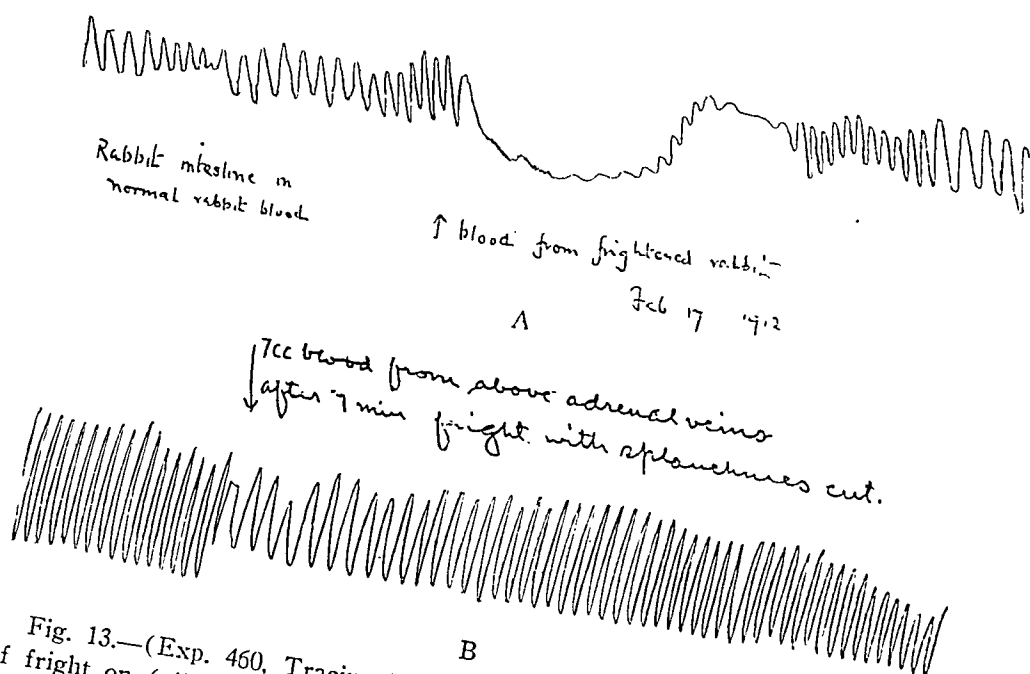 Rabbit intestine in
normal rabbit blood
↑ blood from frightened rabbit
Feb 17 1912
A
7cc blood from above adrenal veins
after 7 min fright with splanchnics cut.
B
Fig. 13.—(Exp. 460,
f fright on